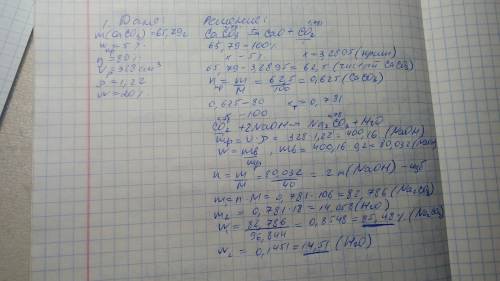 1. Дано:
m(CaCO3)=65,79г
wпр=5%
η=80%
V=328 см³
ρ=1,22
w=20%
Решение:
CaCO3 = CaO + CO2
65,79-100%
x - 5% x=3,2895 (прим)
65,79-3,2895=62,5 (чистый CaCO3)
n = m/M = 62,5/100 = 0,625 (CaCO3)
0,625-80
-100
CO2 + 2NaOH → Na2CO3 + H2O
mр = V·ρ = 328·1,22 = 400,16 (NaOH)
w = mв/mр, mв = 400,16·0,2 = 80,032 (NaOH)
n = m/M = 80,032/40 = 2 n(NaOH) - изб
m = n·M = 0,781·106 = 82,786 (Na2CO3)
m2 = 0,781·18 = 14,058 (H2O)
w = 82,786/96,844 = 0,8548 = 85,48% (Na2CO3)
w2 = 0,1451 = 14,51 (H2O)